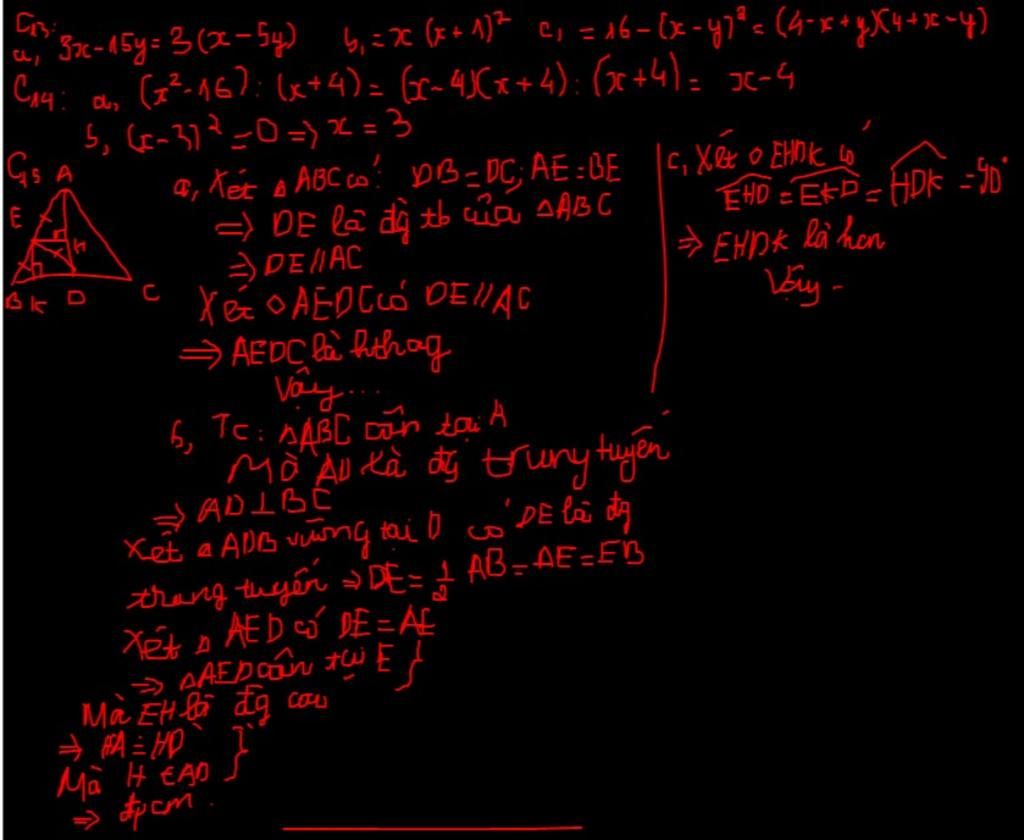 C13:
a, 3x-15y=3(x-5y) b, =x(x+1)² c, =16-(x-y)²=(4-x+y)(4+x-y)
C14: a, (x²-16):(x+4)=(x-4)(x+4):(x+4)= x-4
b, (x-3)²=0=>x=3
C15
A
E
H
B K D C
a, Xét △ABC có: DB=DC; AE=BE
=> DE là đg tb của △ABC
=> DE//AC
Xét ◇AEDC có DE//AC
=> AEDC là hthag
Vậy...
b, Tc: △ABC cân tại A
Mà AD là đg trung tuyến
=> AD⊥BC
Xét △ADB vuông tại D có DE là đg
trung tuyến => DE=1/2 AB=AE=EB
Xét △ AED có DE=AE
=> △AED cân tại E }
Mà EH là đg cao
=> HA=HD }
Mà H ∈AD
=> đpcm.
c, Xét ◇ EHDK có
EHD=EKD=HDK=90°
=> EHDK là hcn
Vậy -